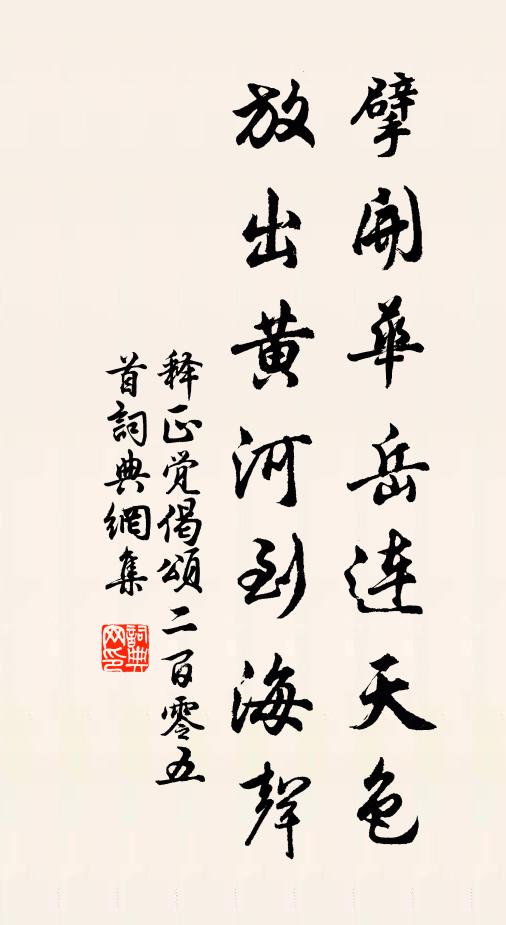 擘開華岳連天色
放出黄河到海聲
释正覚偈頌二百零五
首詞典網集
詞典
网印